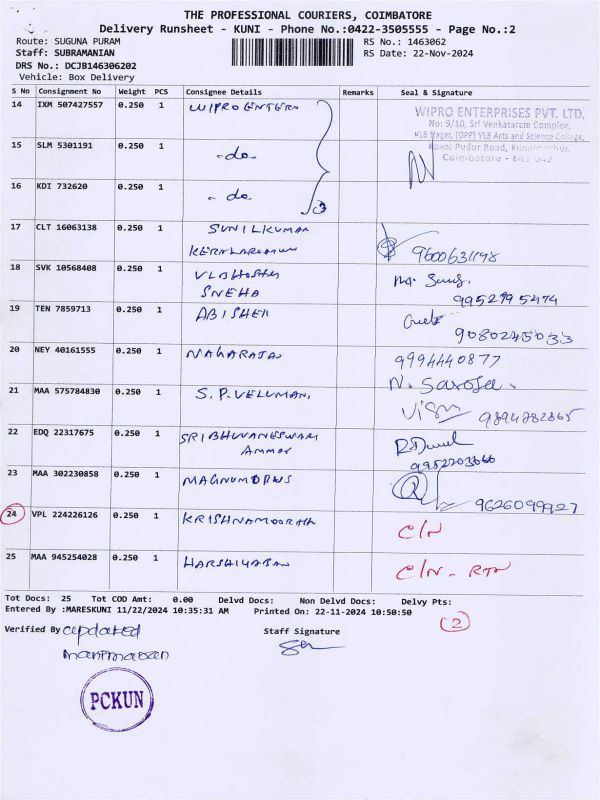 THE PROFESSIONAL COURIERS, COIMBATORE
Delivery Runsheet - KUNI - Phone No.:0422-3505555 - Page No.:2
Route: SUGUNA PURAM RS No.: 1463062
Staff: SUBRAMANIAN RS Date: 22-Nov-2024
DRS No.: DCJB146306202
Vehicle: Box Delivery
S No Consignment No Weight PCS Consignee Details Remarks Seal & Signature
14 IXM 507427557 0.250 1 WIPRO ENTERP
WIPRO ENTERPRISES PVT. LTD,
No: 9/10, Sri Venkataram Complex,
VLB Nagar, (OPP) VLB Arts and Science College,
Kovai Pudur Road, Kuniamuthur,
Coimbatore - 641 042
15 SLM 5301191 0.250 1 -do-
16 KDI 732620 0.250 1 -do- 3
17 CLT 16063138 0.250 1 SUNILKUMAR
9600631148
18 SVK 10568408 0.250 1 VLB Hostel
SNEHA
9952795474
19 TEN 7859713 0.250 1 ABISHEK
9080245033
20 NEY 40161555 0.250 1 NAGARAJAN 9994440877
N. Saroja.
21 MAA 575784830 0.250 1 S.P. VELUMANI,
9894782865
22 EDQ 22317675 0.250 1 SRI BHUVANESWARI
AMMAN
9952203666
23 MAA 302230858 0.250 1 MAGNUM
9626099927
24 VPL 224226126 0.250 1 KRISHNAMOORTHY C/N
25 MAA 945254028 0.250 1 C/N - RTN
Tot Docs: 25 Tot COD Amt: 0.00 Delvd Docs: Non Delvd Docs: Delvy Pts:
Entered By :MARESKUNI 11/22/2024 10:35:31 AM Printed On: 22-11-2024 10:50:50
2
Verified By updated Staff Signature
PCKUN